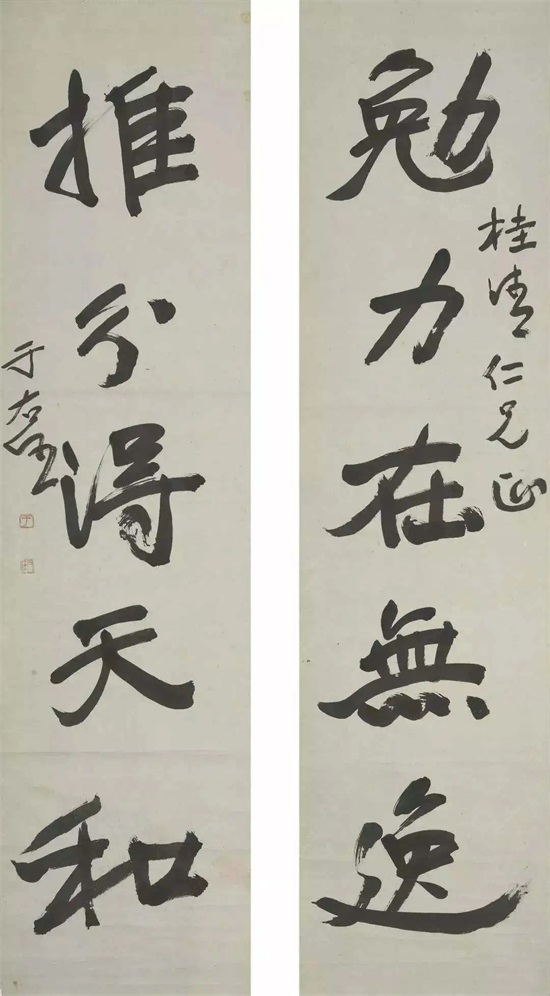 勉力在無逸
桂清仁兄正
推分得天和
于右任
于